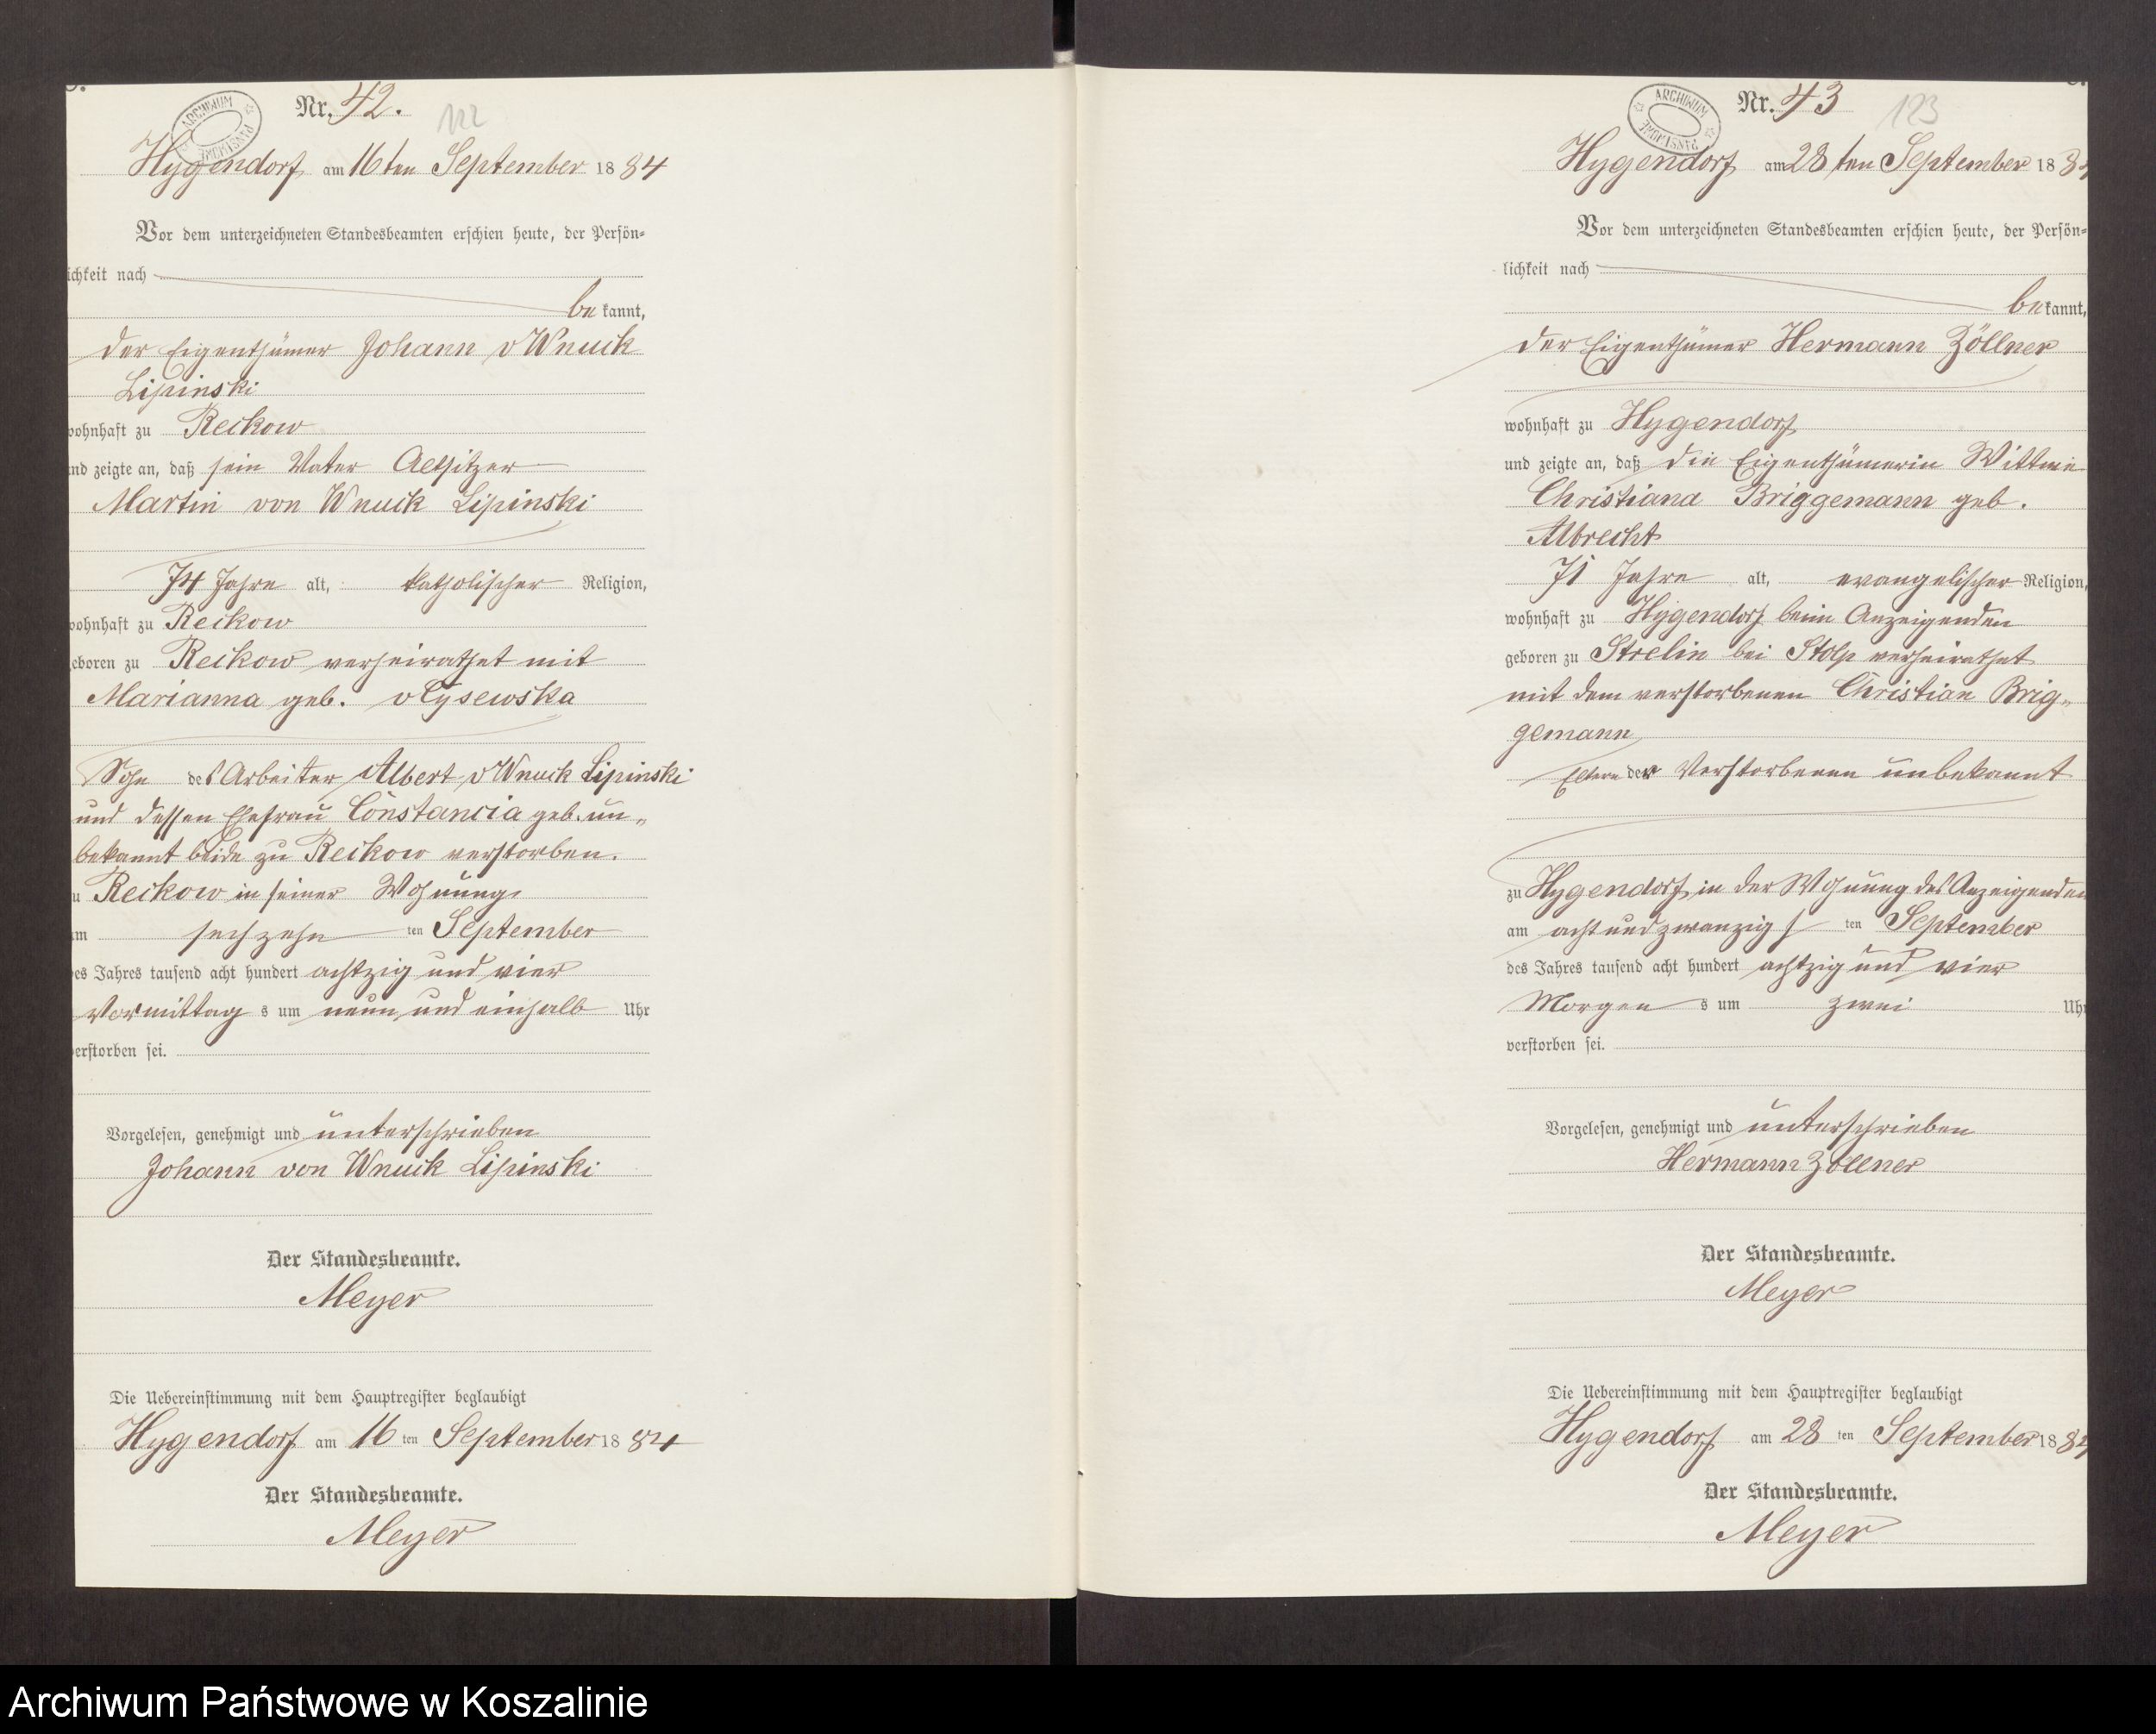 Nr. 42.
122
ARCHIWUM PAŃSTWOWE
Hygendorf am 16ten September 1884
Vor dem unterzeichneten Standesbeamten erschien heute, der Persön-
ichkeit nach
be kannt,
der Eigenthümer Johann v Wnuck
Lipinski
wohnhaft zu Reckow
und zeigte an, daß sein Vater Altsitzer
Martin von Wnuck Lipinski
74 Jahre alt, katholischer Religion,
wohnhaft zu Reckow
eboren zu Reckow verheirathet mit
Marianna geb. v Cysewska
Sohn des Arbeiter Albert v Wnuck Lipinski
und dessen Ehefrau Constancia geb. un„
bekannt beide zu Reckow verstorben.
u Reckow in seiner Wohnung
am sechzehn ten September
des Jahres tausend acht hundert achtzig und vier
Vormittag s um neun und einhalb Uhr
verstorben sei.
Vorgelesen, genehmigt und unterschrieben
Johann von Wnuck Lipinski
Der Standesbeamte.
Meyer
Die Uebereinstimmung mit dem Hauptregister beglaubigt
Hygendorf am 16 ten September 1884
Der Standesbeamte.
Meyer
Nr. 43
123
ARCHIWUM PAŃSTWOWE
Hygendorf am 28ten September 1884
Vor dem unterzeichneten Standesbeamten erschien heute, der Persön-
lichkeit nach
be kannt,
der Eigenthümer Hermann Zöllner
wohnhaft zu Hygendorf
und zeigte an, daß die Eigenthümerin Wittwe
Christiana Briggemann geb.
Albrecht
71 Jahre alt, evangelischer Religion,
wohnhaft zu Hygendorf beim Anzeigenden
geboren zu Strelin bei Stolp verheirathet
mit dem verstorbenen Christian Brig„
gemann
Eltern der Verstorbenen unbekannt
zu Hygendorf in der Wohnung des Anzeigenden
am acht und zwanzigs ten September
des Jahres tausend acht hundert achtzig und vier
Morgen s um zwei Uhr
verstorben sei.
Vorgelesen, genehmigt und unterschrieben
Hermann Zöllner
Der Standesbeamte.
Meyer
Die Uebereinstimmung mit dem Hauptregister beglaubigt
Hygendorf am 28 ten September 1884
Der Standesbeamte.
Meyer
Archiwum Państwowe w Koszalinie